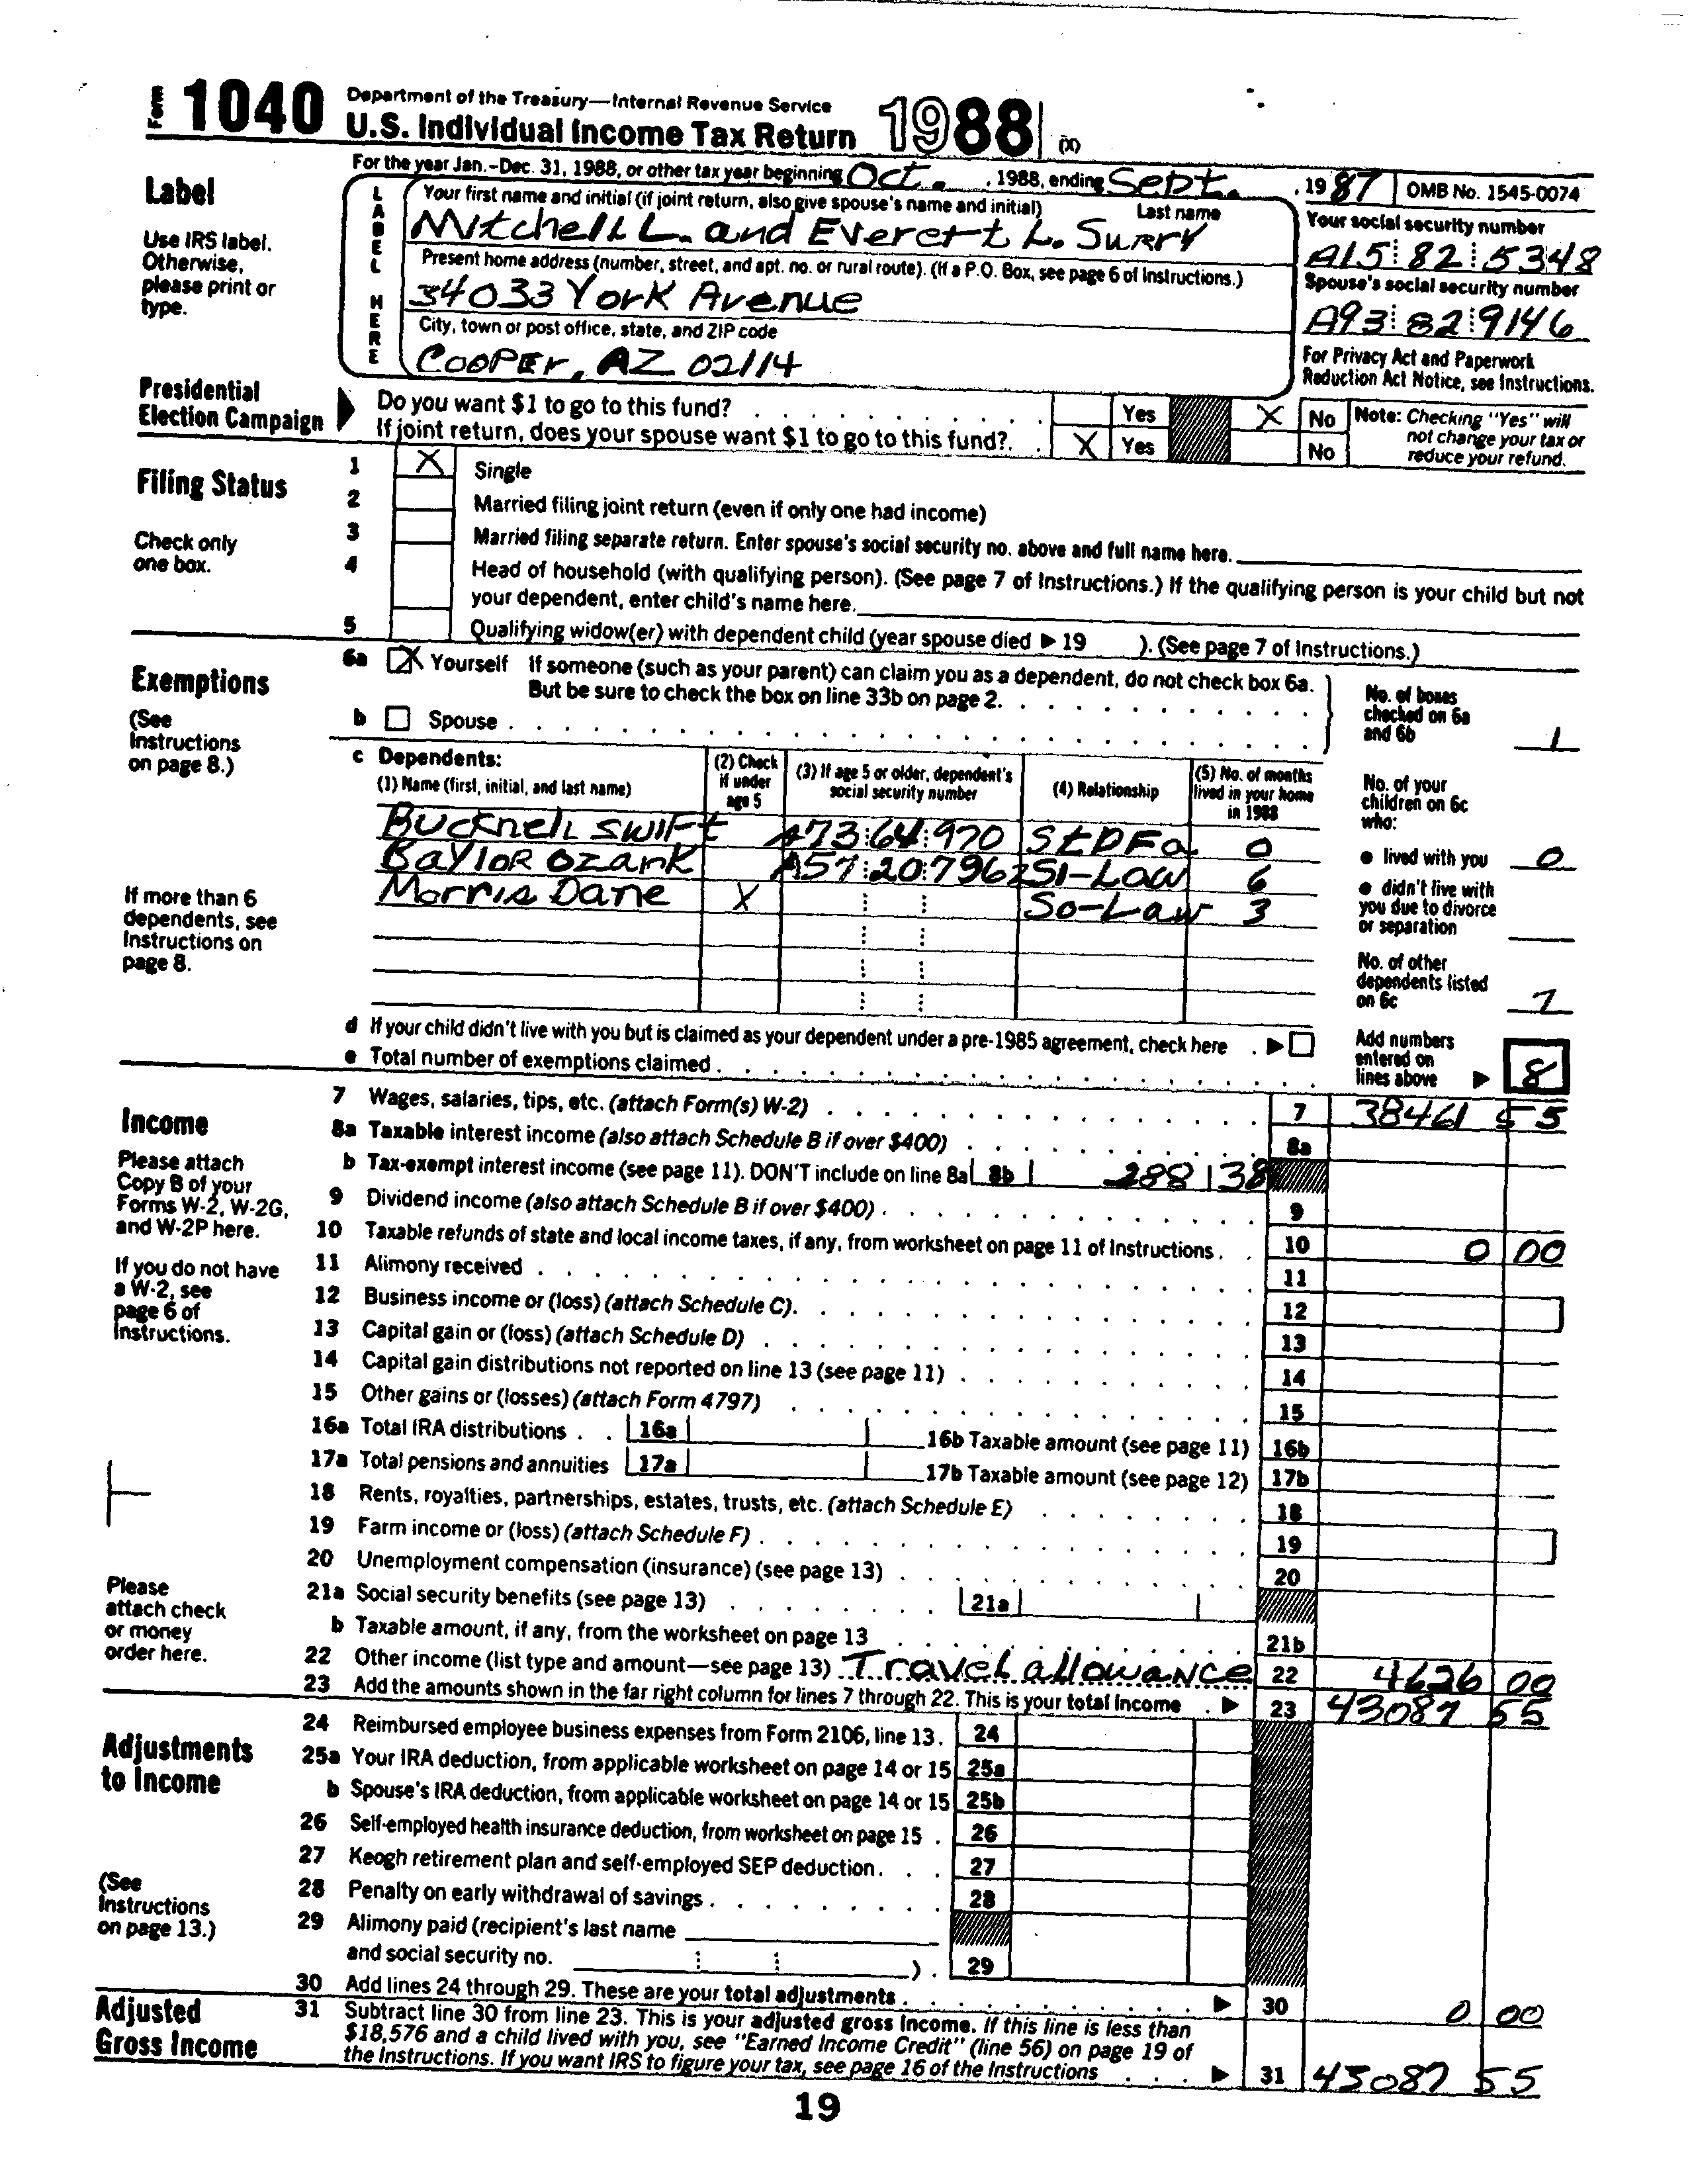 Form 1040 Department of the Treasury—Internal Revenue Service
U.S. Individual Income Tax Return 1988 (X)
For the year Jan.-Dec. 31, 1988, or other tax year beginning Oct. , 1988, ending Sept. , 19 87 OMB No. 1545-0074
Label
Use IRS label.
Otherwise,
please print or
type.
LABEL HERE
Your first name and initial (if joint return, also give spouse's name and initial) Last name
Mitchell L. and Everett L. Surry
Your social security number
A15 82 5348
Present home address (number, street, and apt. no. or rural route). (If a P.O. Box, see page 6 of Instructions.)
34033 York Avenue
Spouse's social security number
A93 82 9146
City, town or post office, state, and ZIP code
Cooper, AZ 02114
For Privacy Act and Paperwork
Reduction Act Notice, see Instructions.
Presidential
Election Campaign
Do you want $1 to go to this fund? Yes X No
If joint return, does your spouse want $1 to go to this fund? X Yes No
Note: Checking "Yes" will
not change your tax or
reduce your refund.
Filing Status
Check only
one box.
1 X Single
2 Married filing joint return (even if only one had income)
3 Married filing separate return. Enter spouse's social security no. above and full name here.
4 Head of household (with qualifying person). (See page 7 of Instructions.) If the qualifying person is your child but not
your dependent, enter child's name here.
5 Qualifying widow(er) with dependent child (year spouse died ▶ 19 ). (See page 7 of Instructions.)
Exemptions
(See
Instructions
on page 8.)
6a X Yourself If someone (such as your parent) can claim you as a dependent, do not check box 6a.
But be sure to check the box on line 33b on page 2.
b Spouse
No. of boxes
checked on 6a
and 6b 1
c Dependents:
(1) Name (first, initial, and last name)
(2) Check
if under
age 5
(3) If age 5 or older, dependent's
social security number
(4) Relationship
(5) No. of months
lived in your home
in 1988
Bucknell Swift A73 64 970 StDFa 0
Baylor Ozark A57 20 7962 Sl-Law 6
Morris Dane X So-Law 3
If more than 6
dependents, see
Instructions on
page 8.
No. of your
children on 6c
who:
● lived with you 0
● didn't live with
you due to divorce
or separation
No. of other
dependents listed
on 6c 7
d If your child didn't live with you but is claimed as your dependent under a pre-1985 agreement, check here ▶
e Total number of exemptions claimed
Add numbers
entered on
lines above ▶ 8
Income
Please attach
Copy B of your
Forms W-2, W-2G,
and W-2P here.
If you do not have
a W-2, see
page 6 of
Instructions.
Please
attach check
or money
order here.
7 Wages, salaries, tips, etc. (attach Form(s) W-2) 7 38461 55
8a Taxable interest income (also attach Schedule B if over $400) 8a
b Tax-exempt interest income (see page 11). DON'T include on line 8a 8b 288 38
9 Dividend income (also attach Schedule B if over $400) 9
10 Taxable refunds of state and local income taxes, if any, from worksheet on page 11 of Instructions 10 0 00
11 Alimony received 11
12 Business income or (loss) (attach Schedule C) 12
13 Capital gain or (loss) (attach Schedule D) 13
14 Capital gain distributions not reported on line 13 (see page 11) 14
15 Other gains or (losses) (attach Form 4797) 15
16a Total IRA distributions 16a 16b Taxable amount (see page 11) 16b
17a Total pensions and annuities 17a 17b Taxable amount (see page 12) 17b
18 Rents, royalties, partnerships, estates, trusts, etc. (attach Schedule E) 18
19 Farm income or (loss) (attach Schedule F) 19
20 Unemployment compensation (insurance) (see page 13) 20
21a Social security benefits (see page 13) 21a
b Taxable amount, if any, from the worksheet on page 13 21b
22 Other income (list type and amount—see page 13) Travel allowance 22 4626 00
23 Add the amounts shown in the far right column for lines 7 through 22. This is your total income ▶ 23 43087 55
Adjustments
to Income
(See
Instructions
on page 13.)
24 Reimbursed employee business expenses from Form 2106, line 13. 24
25a Your IRA deduction, from applicable worksheet on page 14 or 15 25a
b Spouse's IRA deduction, from applicable worksheet on page 14 or 15 25b
26 Self-employed health insurance deduction, from worksheet on page 15 26
27 Keogh retirement plan and self-employed SEP deduction 27
28 Penalty on early withdrawal of savings 28
29 Alimony paid (recipient's last name
and social security no. ) 29
30 Add lines 24 through 29. These are your total adjustments ▶ 30 0 00
Adjusted
Gross Income
31 Subtract line 30 from line 23. This is your adjusted gross income. If this line is less than
$18,576 and a child lived with you, see "Earned Income Credit" (line 56) on page 19 of
the Instructions. If you want IRS to figure your tax, see page 16 of the Instructions ▶ 31 43087 55
19